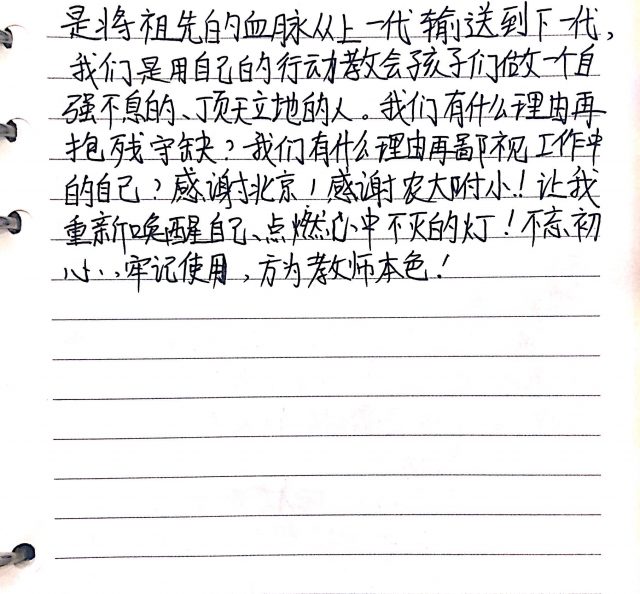 是将祖先的血脉从上一代输送到下一代，
我们是用自己的行动教会孩子们做一个自
强不息的、顶天立地的人。我们有什么理由再
抱残守缺？我们有什么理由再鄙视工作中
的自己？感谢北京！感谢农大附小！让我
重新唤醒自己、点燃心中不灭的灯！不忘初
心，牢记使用，方为教师本色！